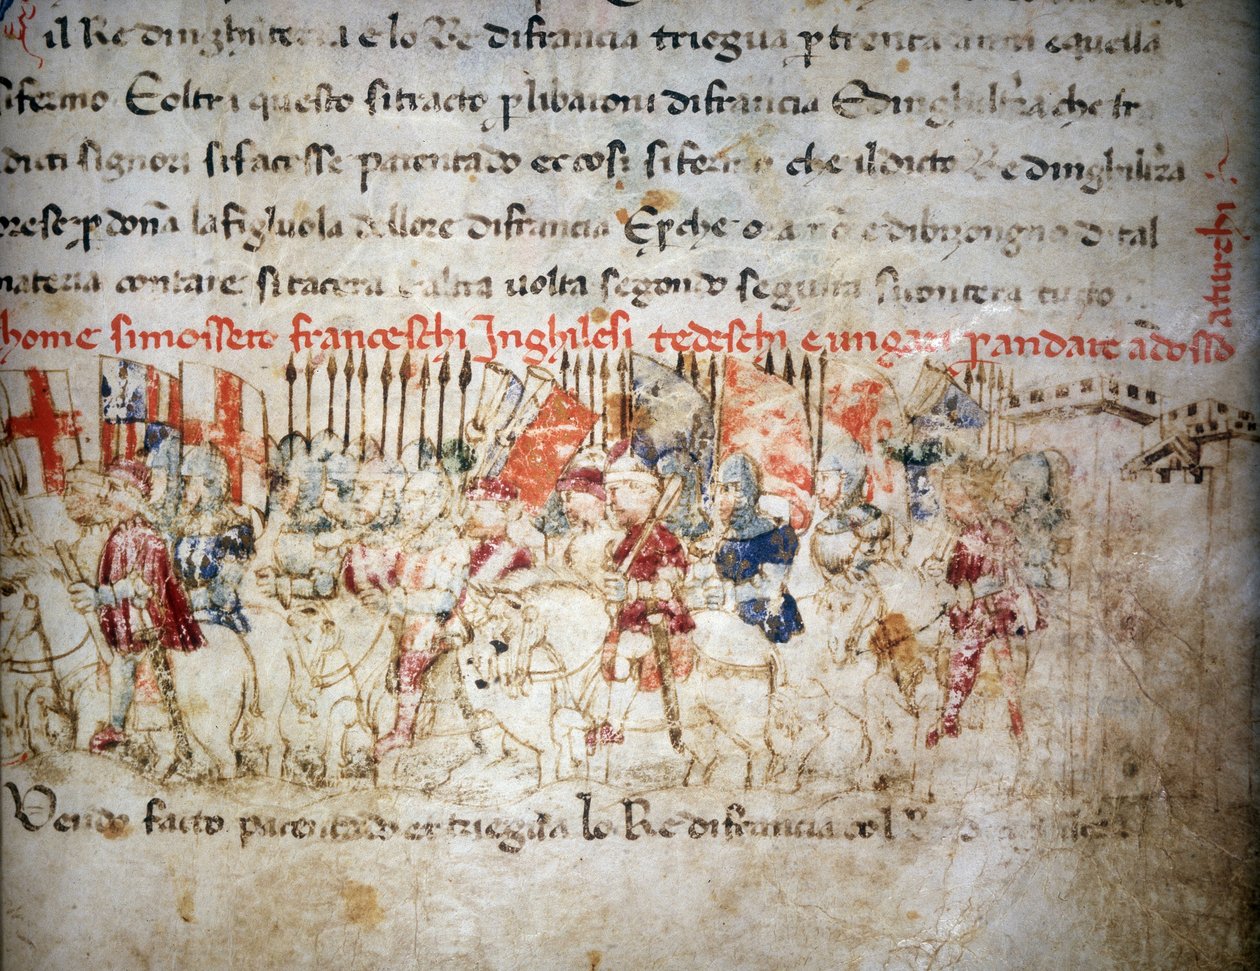 il Re dinghilterra e lo Re difrancia triegua p trenta anni e quella
fermo Eoltr i questo sitracto p libaroni difrancia Edinghilt'ra che fr
diti signori sifacesse parentado et cosi si fermo che il dicto Re dinghilt'ra
prese p donna la figluola dellore difrancia Eperche ora non edibizongno dital
materia contare sitacera laltra volta segondo seguita sicontera tucto
home simoissero franceschi Jnghilesi tedeschi e ungari p andare adosso
aturchi
Vendo facto parentado et triegua lo Re difrancia col Re